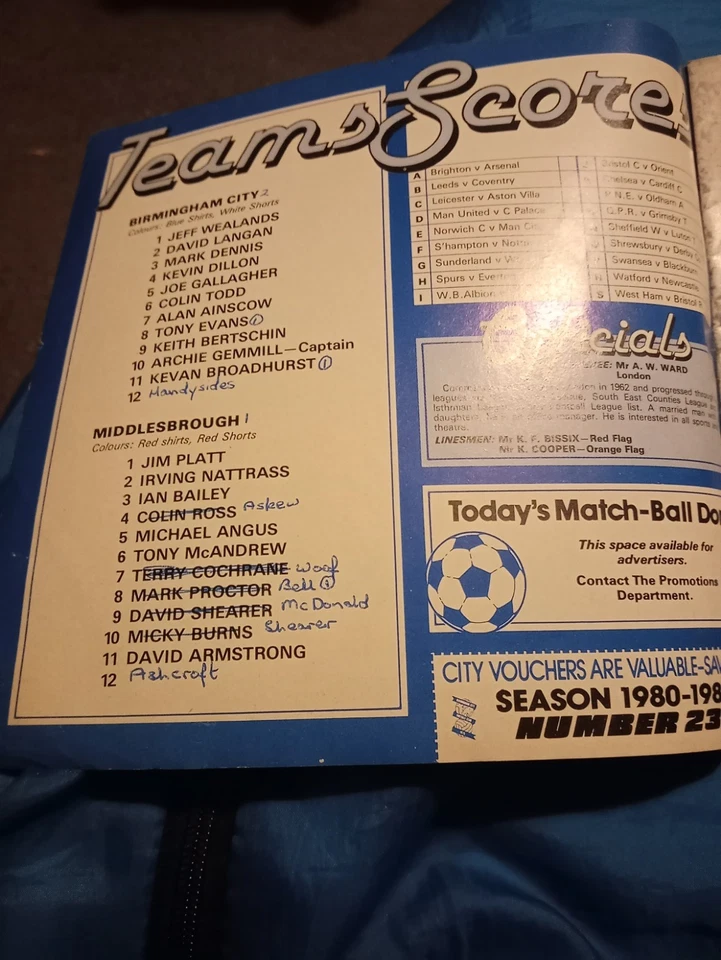 Teams Scores
BIRMINGHAM CITY 2
Colours: Blue Shirts, White Shorts
1 JEFF WEALANDS
2 DAVID LANGAN
3 MARK DENNIS
4 KEVIN DILLON
5 JOE GALLAGHER
6 COLIN TODD
7 ALAN AINSCOW
8 TONY EVANS 1
9 KEITH BERTSCHIN
10 ARCHIE GEMMILL—Captain
11 KEVAN BROADHURST 1
12 Handysides
MIDDLESBROUGH 1
Colours: Red shirts, Red Shorts
1 JIM PLATT
2 IRVING NATTRASS
3 IAN BAILEY
4 COLIN ROSS Askew
5 MICHAEL ANGUS
6 TONY McANDREW
7 TERRY COCHRANE Woof
8 MARK PROCTOR Bell 1
9 DAVID SHEARER McDonald
10 MICKY BURNS Shearer
11 DAVID ARMSTRONG
12 Ashcroft
A Brighton v Arsenal
B Leeds v Coventry
C Leicester v Aston Villa
D Man United v C Palace
E Norwich C v Man
F S'hampton v
G Sunderland v
H Spurs v
I W.B.Albion
Bristol C v Orient
Chelsea v Cardiff C
P.N.E. v Oldham A
Q.P.R. v Grimsby T
Sheffield W v Luton
Shrewsbury v Derby
Swansea v Blackburn
Watford v Newcastle
S West Ham v Bristol
Officials
Mr A. W. WARD
London
in 1962 and progressed
South East Counties League
Isthmian Football League list. A married man
manager. He is interested in all sports
theatre.
LINESMEN: Mr K. F. BISSIX—Red Flag
Mr K. COOPER—Orange Flag
Today's Match-Ball
This space available for
advertisers.
Contact The Promotions
Department.
CITY VOUCHERS ARE VALUABLE-
SEASON 1980-198
NUMBER 23